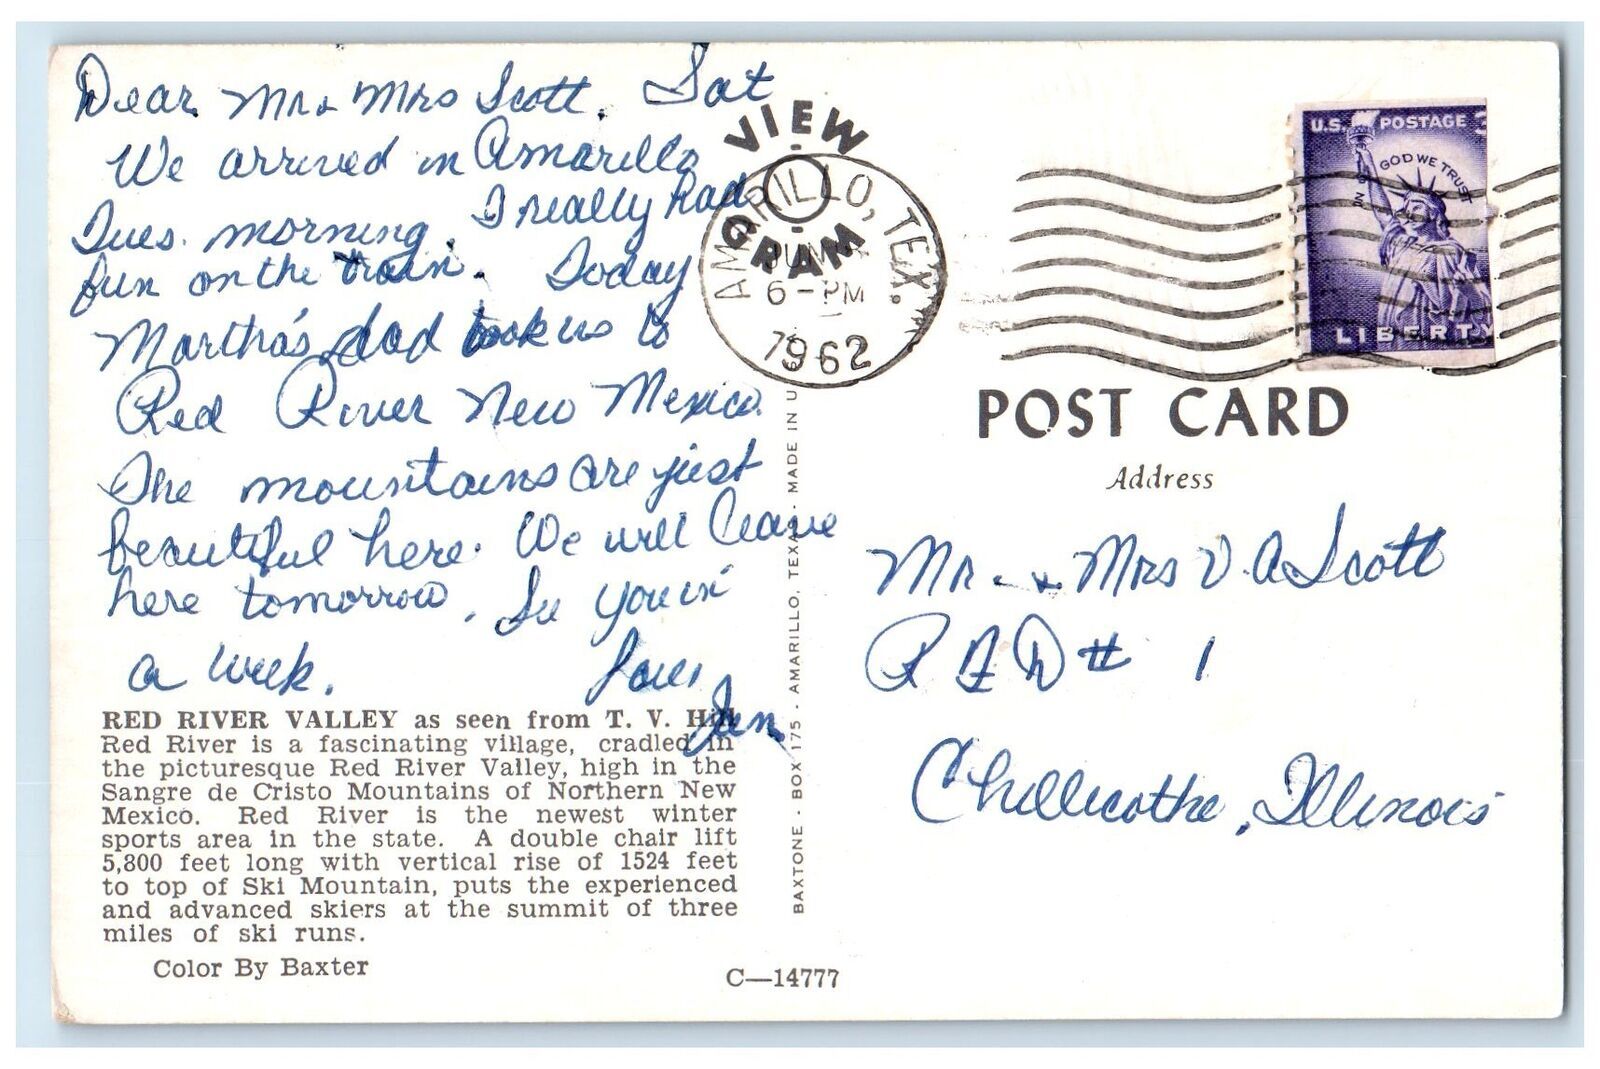 Dear Mr & Mrs Scott. Sat
We arrived in Amarillo
Tues. morning. I really had
fun on the train. Today
Martha's dad took us to
Red River New Mexico.
The mountains are just
beautiful here. We will leave
here tomorrow. See you in
a week. Love,
Jan
RED RIVER VALLEY as seen from T. V. Hill
Red River is a fascinating village, cradled in
the picturesque Red River Valley, high in the
Sangre de Cristo Mountains of Northern New
Mexico. Red River is the newest winter
sports area in the state. A double chair lift
5,800 feet long with vertical rise of 1524 feet
to top of Ski Mountain, puts the experienced
and advanced skiers at the summit of three
miles of ski runs.
Color By Baxter
C—14777
BAXTONE - BOX 175 - AMARILLO, TEXAS - MADE IN U
VIEW
GRAM
AMARILLO, TEX.
JUN
6 - PM
1962
U.S. POSTAGE 3
IN GOD WE TRUST
LIBERTY
POST CARD
Address
Mr. & Mrs V. A Scott
R F D # 1
Chillicothe, Illinois